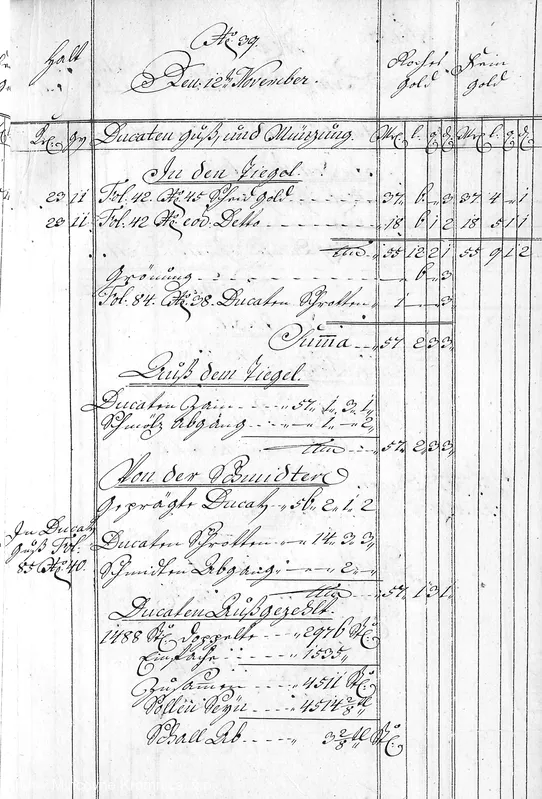 No. 39.
Halt
Den 12ten November.
Roches Gold
Fein Gold
Kr. Gr. Ducaten Guß, und Münzung. Mrc. l. q d. Mrc. l. q. d.
In den Tiegel.
23 11 Fol. 42. No. 45 Scheid Gold 37 6 - 3 37 4 - 1
23 11 Fol. 42 No. eod. Detto 18 6 1 2 18 5 1 1
55 12 2 1 55 9 1 2
- 6 - 3
Fol. 84. No. 38. Ducaten Schrotten 1 - - 3
Summa 57 2 3 3
Auß dem Tiegel.
Ducaten Zain 57 1 3 1
Schmölz Abgang - 1 - 2
57 2 3 3
Von der Schmidten
Geprägte Ducat. 56 2 1 2
In Ducat. Guß Fol. 85 No. 40.
Ducaten Schrotten 14 3 3
Schmidten Abgang 2
57 1 3 1
Ducaten Außgezehlt.
1488 Stk. Doppelte 2976 Stk.
Einfache 1535
Zusamen 4511 Stk.
Sollen Seyn 4514 2/8
Schall Ab 3 2/8 Stk.